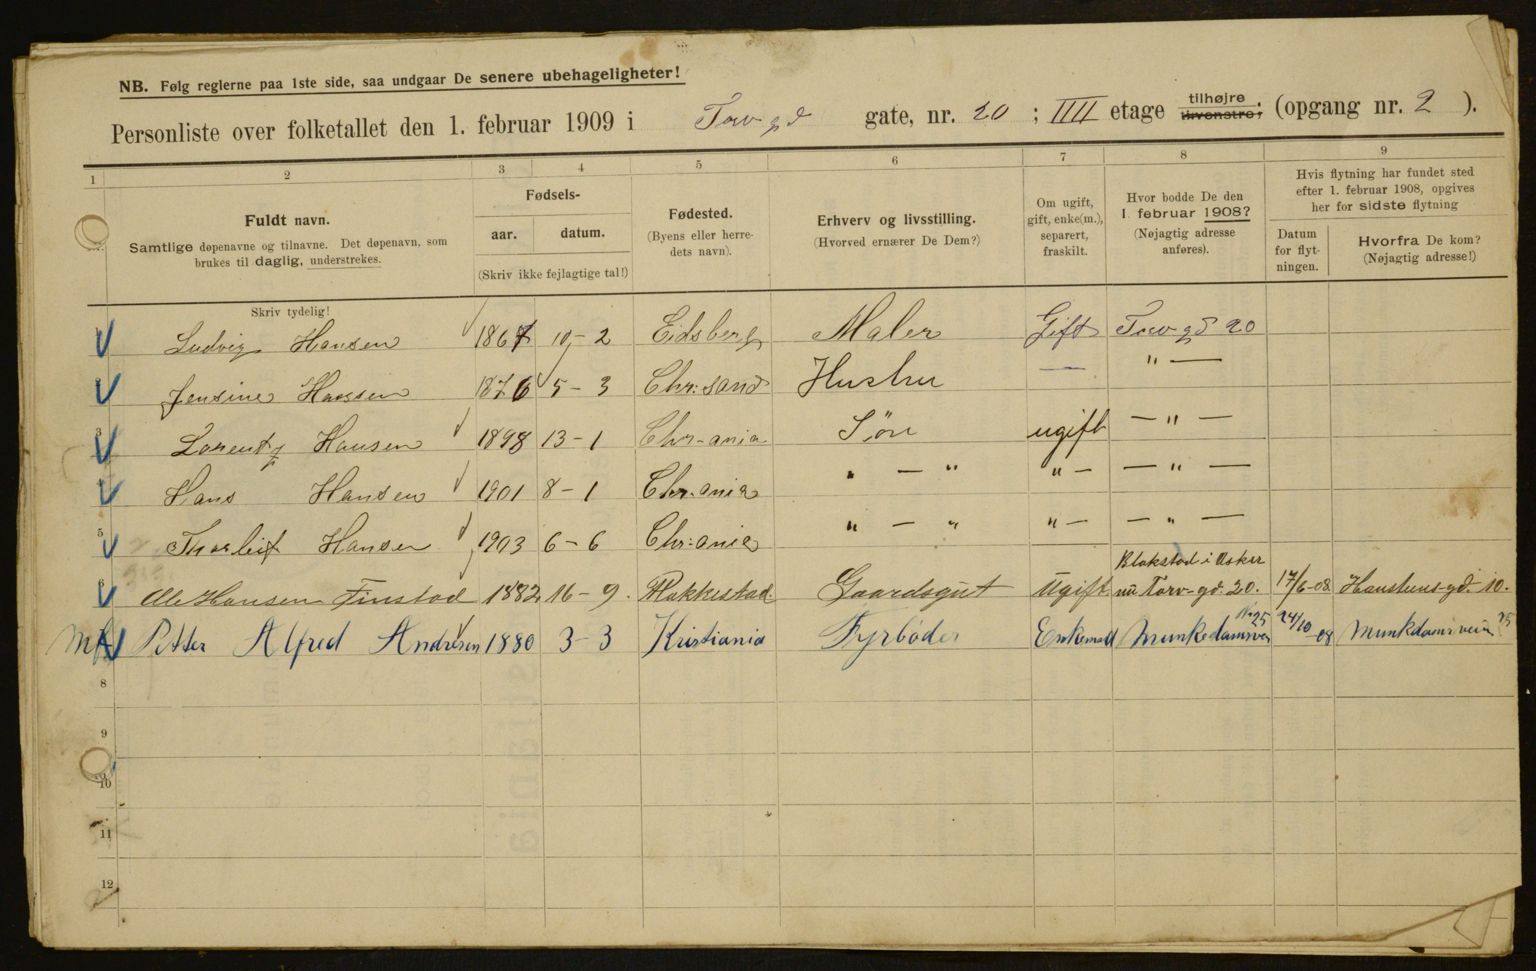 NB. Følg reglerne paa 1ste side, saa undgaar De senere ubehageligheter!
Personliste over folketallet den 1. februar 1909 i Torvgd gate, nr. 20 ; IIII etage tilhøjre tilvenstre; (opgang nr. 2 ).
1 2 3 4 5 6 7 8 9
Fuldt navn.
Samtlige døpenavne og tilnavne. Det døpenavn, som
brukes til daglig, understrekes.
Skriv tydelig!
Fødsels-
aar. datum.
(Skriv ikke fejlagtige tal!)
Fødested.
(Byens eller herre-
dets navn).
Erhverv og livsstilling.
(Hvorved ernærer De Dem?)
Om ugift,
gift, enke(m.),
separert,
fraskilt.
Hvor bodde De den
1. februar 1908?
(Nøjagtig adresse
anføres).
Hvis flytning har fundet sted
efter 1. februar 1908, opgives
her for sidste flytning
Datum
for flyt-
ningen.
Hvorfra De kom?
(Nøjagtig adresse!)
Ludvig Hansen 1867 10-2 Eidsberg Maler Gift Torvgd 20
Jensine Hansen 1876 5-3 Chr:sand Hustru — " —
3 Lorentz Hansen 1898 13-1 Chr-ania Søn ugift — " —
Hans Hansen 1901 8-1 Chr.ania " — " " — — " —
5 Thorleif Hansen 1903 6-6 Chr:ania " — " " — — " —
Blakstad i Asker
6 Ole Hansen Finstad 1882 16-9. Rakkestad. Gaardsgut Ugift nu Torv-gd. 20. 17/6-08 Hausteens-gd. 10.
Petter Alfred Andresen 1880 3-3 Kristiania Fyrbøder Enkemand Munkedamsvei No 25 24/10-08 Munkdamsveien 25
8
9
10
11
12